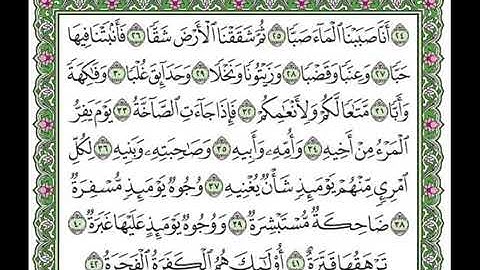 ٢٤ أَنَّا صَبَبْنَا ٱلْمَآءَ صَبًّا ٢٥ ثُمَّ شَقَقْنَا ٱلْأَرْضَ شَقًّا ٢٦ فَأَنۢبَتْنَا فِيهَا
حَبًّا ٢٧ وَعِنَبًا وَقَضْبًا ٢٨ وَزَيْتُونًا وَنَخْلًا ٢٩ وَحَدَآئِقَ غُلْبًا ٣٠ وَفَٰكِهَةً
وَأَبًّا ٣١ مَّتَٰعًا لَّكُمْ وَلِأَنْعَٰمِكُمْ ٣٢ فَإِذَا جَآءَتِ ٱلصَّآخَّةُ ٣٣ يَوْمَ يَفِرُّ
ٱلْمَرْءُ مِنْ أَخِيهِ ٣٤ وَأُمِّهِۦ وَأَبِيهِ ٣٥ وَصَٰحِبَتِهِۦ وَبَنِيهِ ٣٦ لِكُلِّ
ٱمْرِئٍ مِّنْهُمْ يَوْمَئِذٍ شَأْنٌ يُغْنِيهِ ٣٧ وُجُوهٌ يَوْمَئِذٍ مُّسْفِرَةٌ
٣٨ ضَاحِكَةٌ مُّسْتَبْشِرَةٌ ٣٩ وَوُجُوهٌ يَوْمَئِذٍ عَلَيْهَا غَبَرَةٌ ٤٠
تَرْهَقُهَا قَتَرَةٌ ٤١ أُو۟لَٰٓئِكَ هُمُ ٱلْكَفَرَةُ ٱلْفَجَرَةُ ٤٢